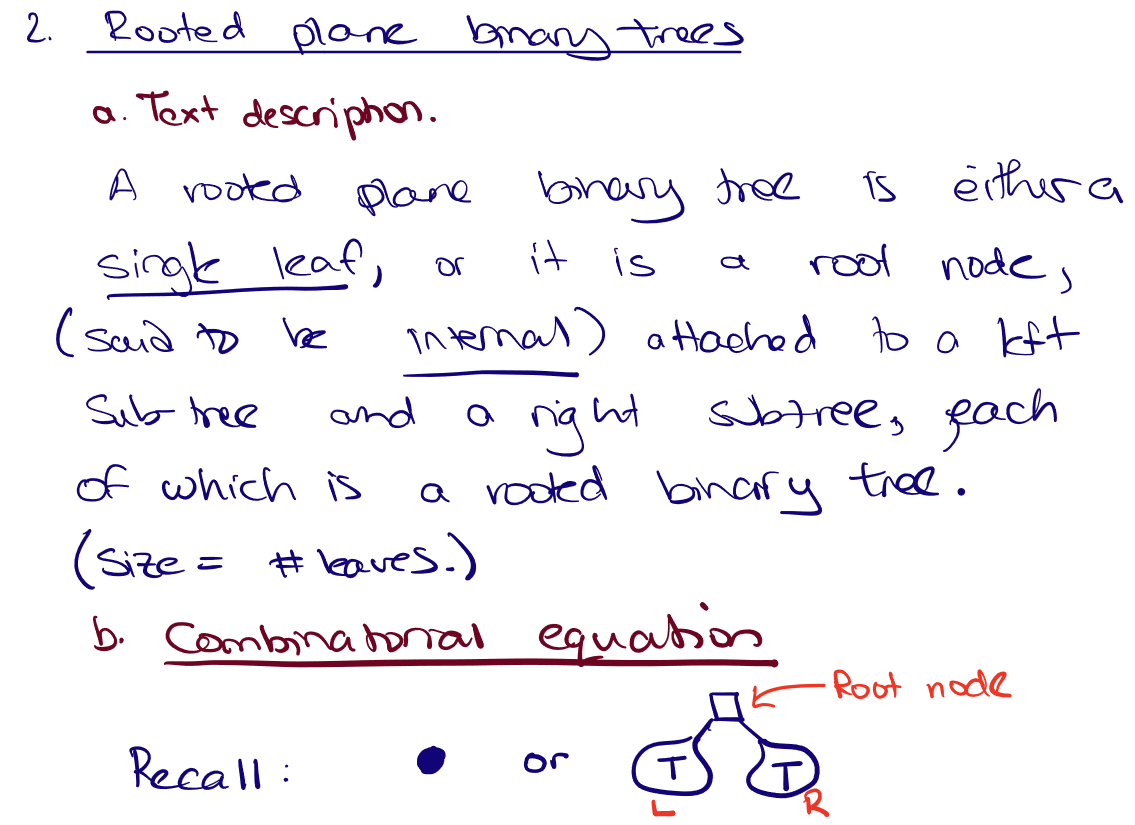 2. Rooted plane binary trees
a. Text description.
A rooted plane binary tree is either a
single leaf, or it is a root node,
(said to be internal) attached to a left
Subtree and a right subtree, each
of which is a rooted binary tree.
(size = # leaves.)
b. Combinatorial equation
Root node
Recall: or T T
L R